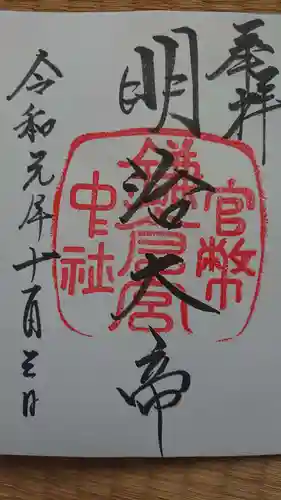 奉拝
明治天帝
官幣
鎌倉宮
中社
令和元年十一月三日